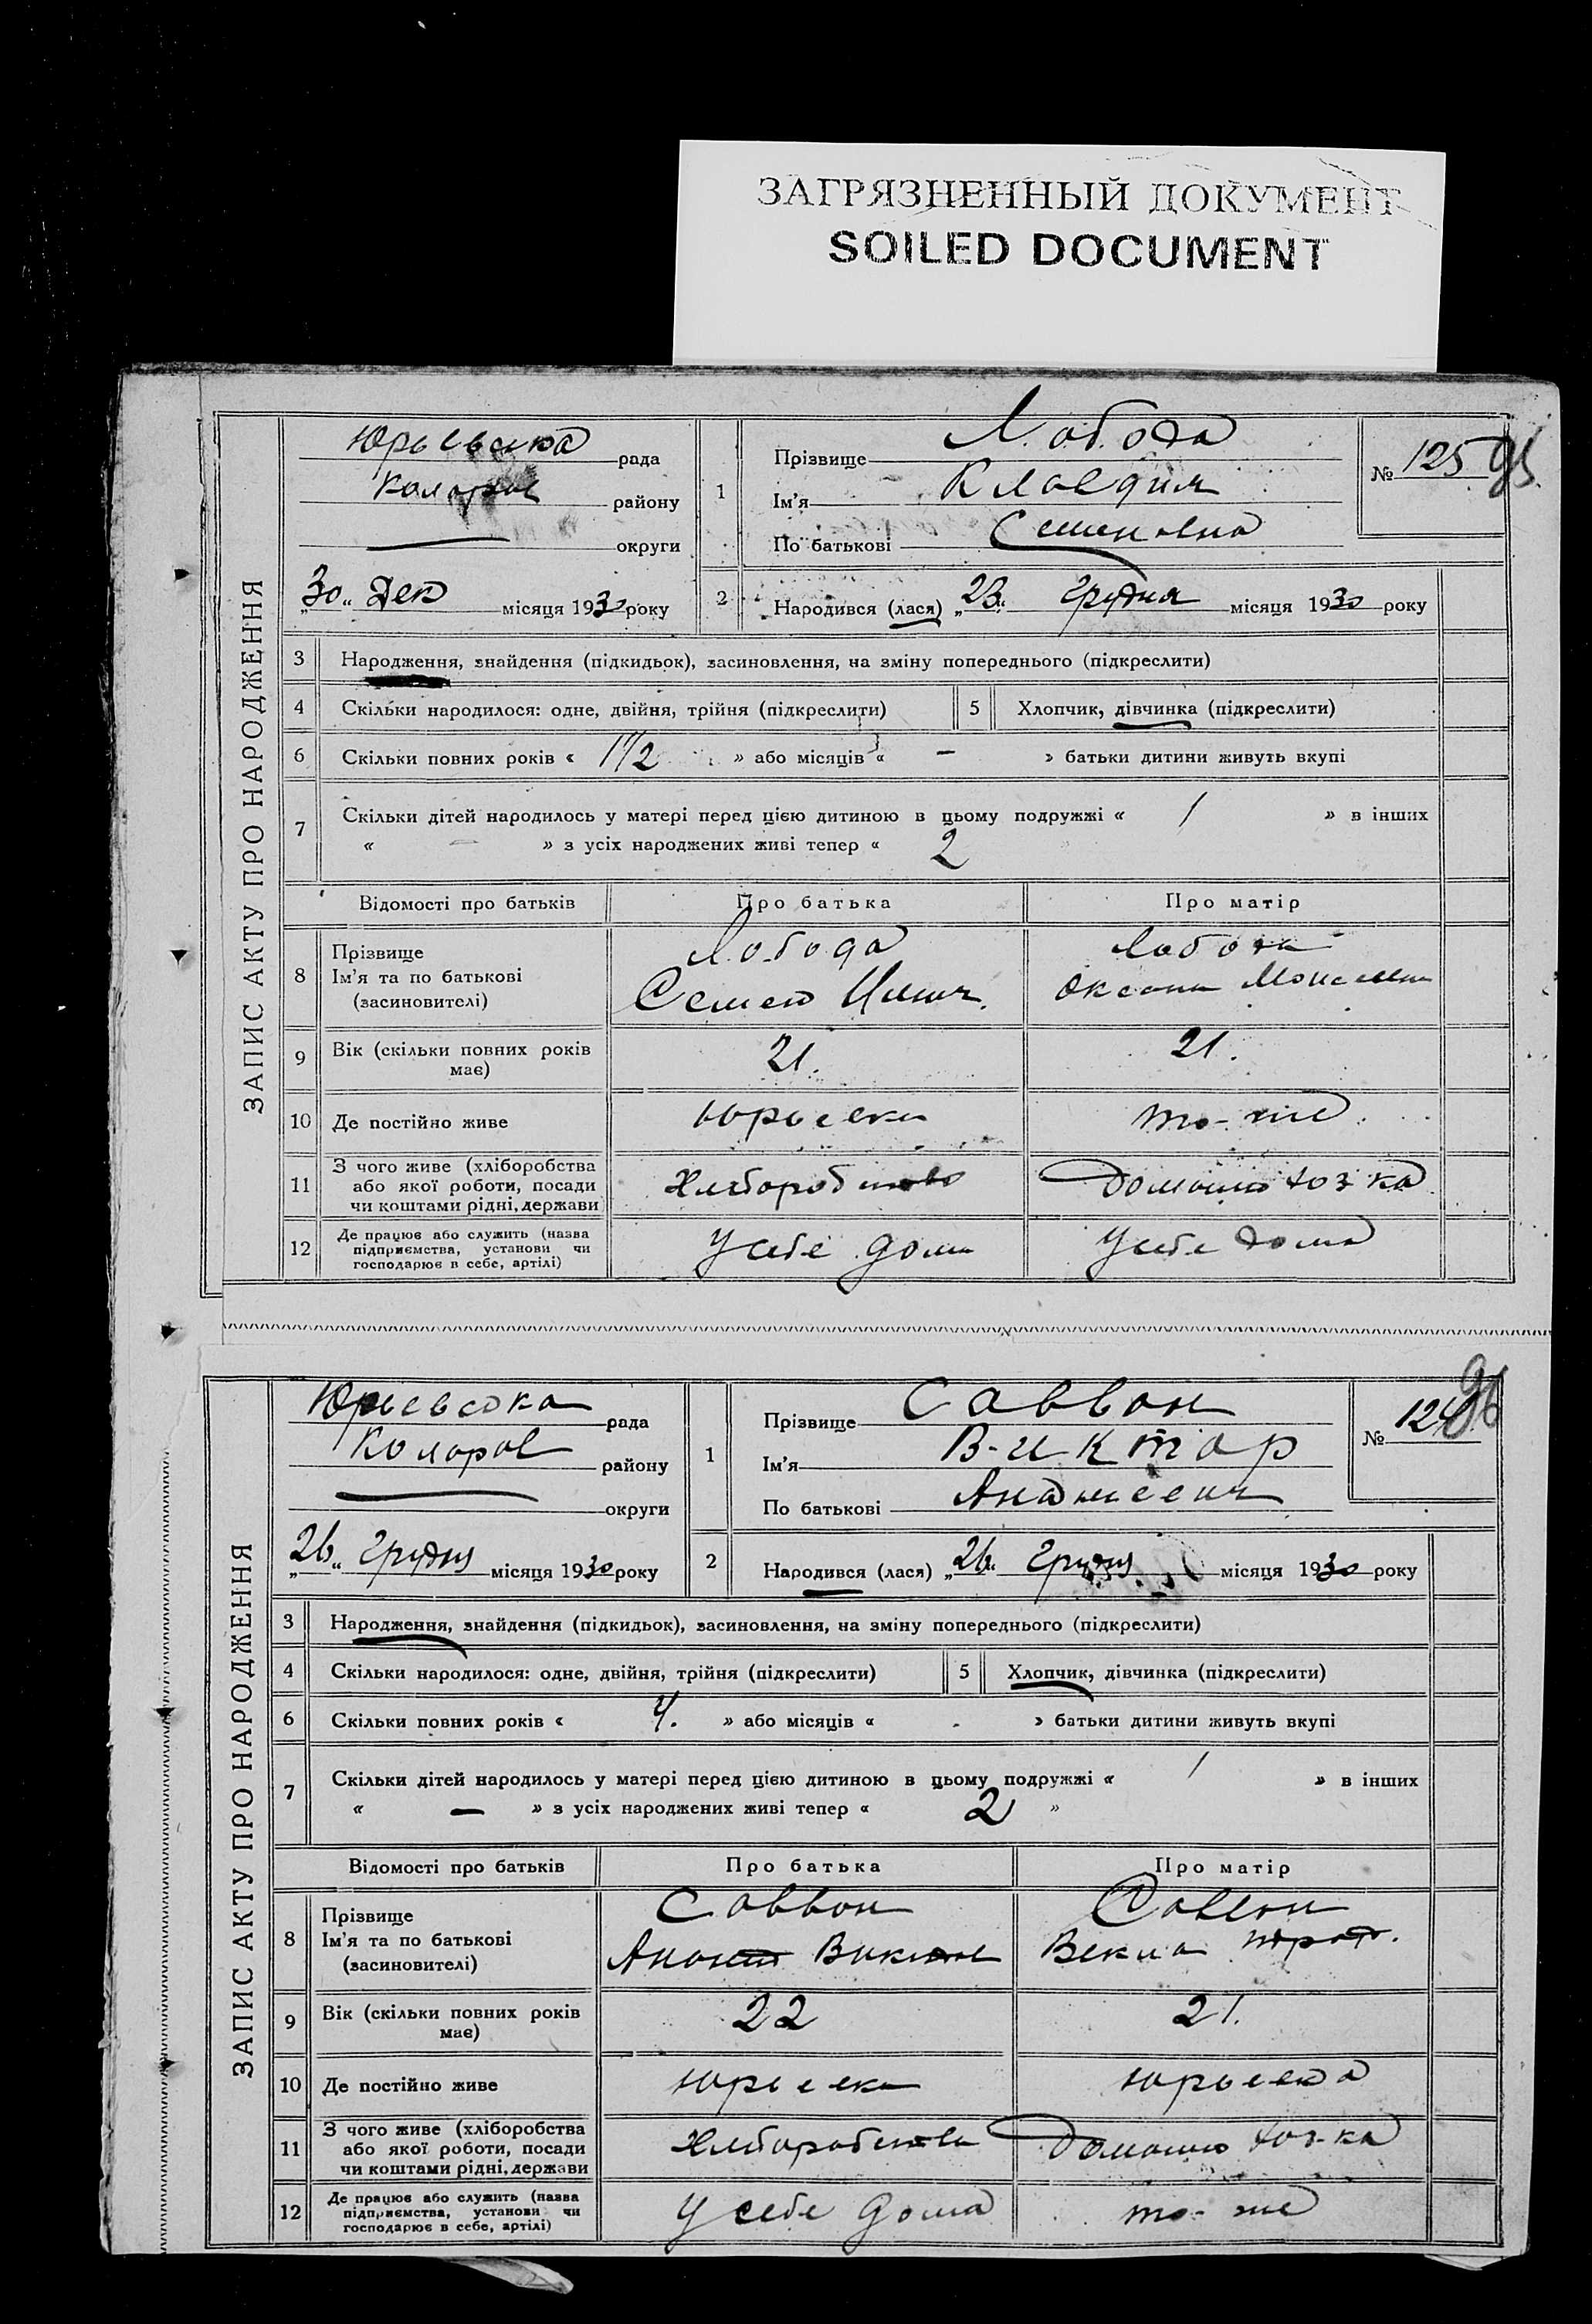 ЗАГРЯЗНЕННЫЙ ДОКУМЕНТ
SOILED DOCUMENT
ЗАПИС АКТУ ПРО НАРОДЖЕННЯ
Юрьевська рада
району
округи
„30“ Дек місяця 1930 року
1
Прізвище Лобода
Ім'я Клавдия
По батькові Семеновна
№ 125 95
2
Народився (лася) „23“ Грудня місяця 1930 року
3 Народження, знайдення (підкидьок), засиновлення, на зміну попереднього (підкреслити)
4 Скільки народилося: одне, двійня, трійня (підкреслити) 5 Хлопчик, дівчинка (підкреслити)
6 Скільки повних років « 1 1/2 » або місяців « – » батьки дитини живуть вкупі
7 Скільки дітей народилось у матері перед цією дитиною в цьому подружжі « 1 » в інших
« — » з усіх народжених живі тепер « 2
Відомості про батьків Про батька Про матір
8 Прізвище
Ім'я та по батькові
(засиновителі)
Лобода
Семен
Лобода
Оксана
9 Вік (скільки повних років має) 21. 21.
10 Де постійно живе Юрьевка то-же
11 З чого живе (хліборобства
або якої роботи, посади
чи коштами рідні, держави
Хліборобство
Домашно хоз-ка
12 Де працює або служить (назва
підприємства, установи чи
господарює в себе, артілі)
У себе дома
У себе дома
ЗАПИС АКТУ ПРО НАРОДЖЕННЯ
Юрьевська рада
Коларов району
округи
„26“ Грудня місяця 1930 року
1
Прізвище Саввон
Ім'я Виктор
По батькові
№ 96
2
Народився (лася) „26“ Грудня місяця 1930 року
3 Народження, знайдення (підкидьок), засиновлення, на зміну попереднього (підкреслити)
4 Скільки народилося: одне, двійня, трійня (підкреслити) 5 Хлопчик, дівчинка (підкреслити)
6 Скільки повних років « 4. » або місяців « - » батьки дитини живуть вкупі
7 Скільки дітей народилось у матері перед цією дитиною в цьому подружжі « 1 » в інших
« — » з усіх народжених живі тепер « 2 »
Відомості про батьків Про батька Про матір
8 Прізвище
Ім'я та по батькові
(засиновителі)
Саввон
Саввон
Векла
9 Вік (скільки повних років має) 22 21.
10 Де постійно живе Юрьевка Юрьевка
11 З чого живе (хліборобства
або якої роботи, посади
чи коштами рідні, держави
Хліборобство
Домашно хоз-ка
12 Де працює або служить (назва
підприємства, установи чи
господарює в себе, артілі)
У себе дома
то-же